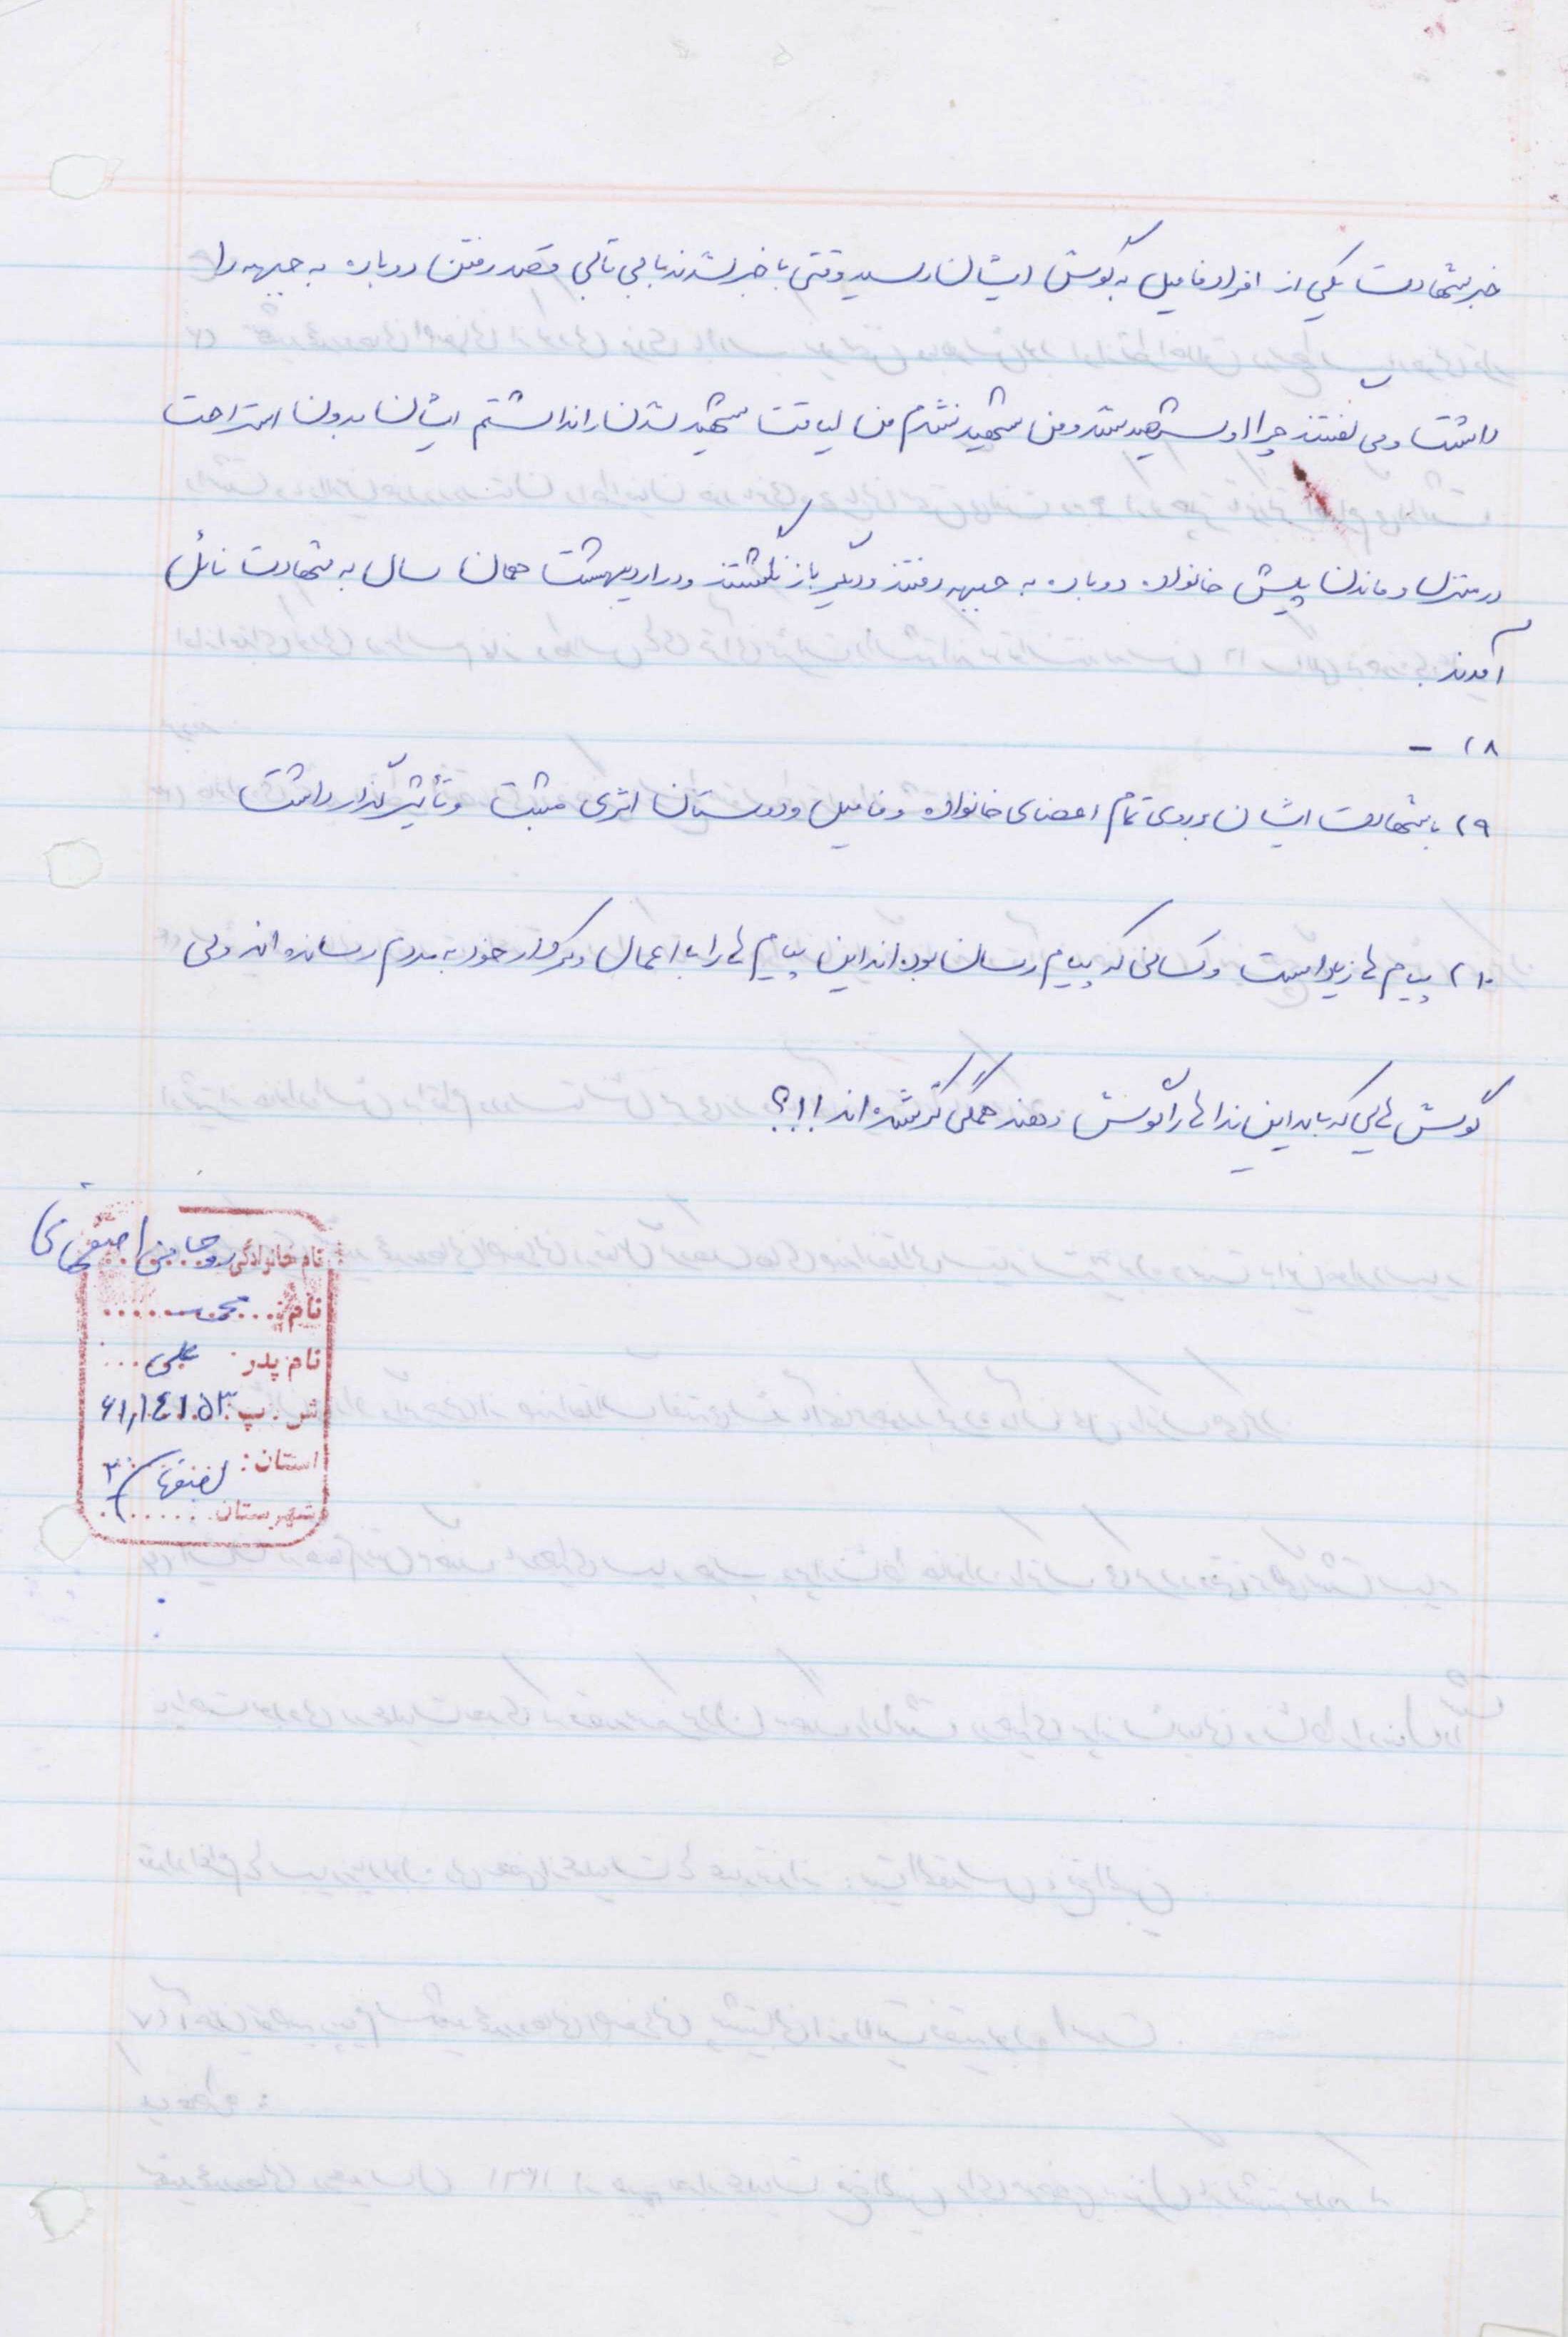 خبر شهادت یکی از افراد فامیل به گوش ایشان رسید وقتی با خبر شدند با بی تابی قصد رفتن دوباره به جبهه را
داشت و می گفتند چرا او شهید شد و من شهید نشدم من لیاقت شهید شدن را نداشتم ایشان بدون استراحت
در منزل و ماندن پیش خانواده دوباره به جبهه رفتند و دیگر باز نگشتند و در اردیبهشت همان سال به شهادت نائل
آمدند.
(۸ –
(۹ با شهادت ایشان بر روی تمام اعضای خانواده و فامیل و دوستان اثری مثبت و تأثیر گذار داشت
(۱۰ پیام ها زیاد است و کسانی که پیام رسان بوده اند این پیام ها را با اعمال و کردار خود به مردم رسانده اند ولی
گوش هایی که باید این ندا ها را گوش دهند همگی کر شده اند !!؟
نام خانوادگی روحامی اصفهانی
نام: محمد
نام پدر علی
ش. پ ۶۱,۱۴۱۵۳
استان: اصفهان ۳
شهرستان